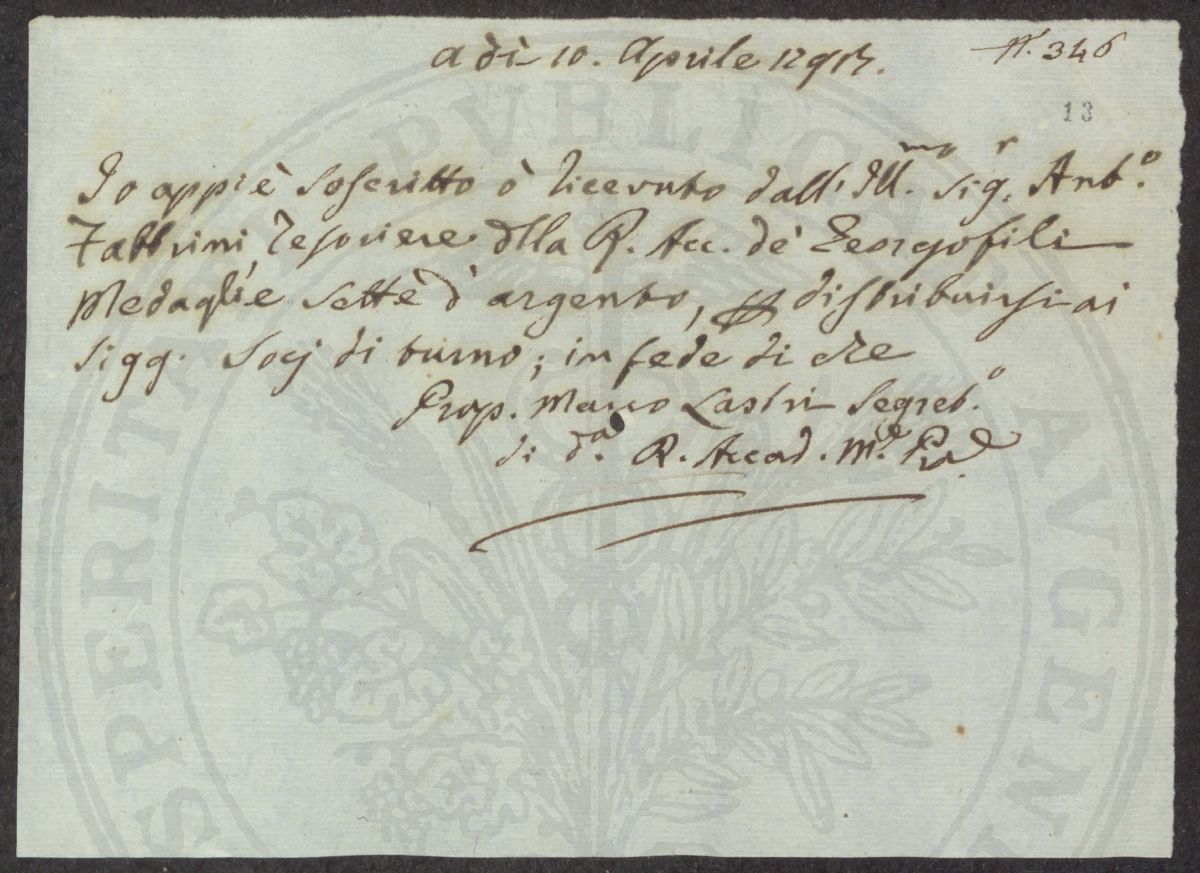 N. 346
a dì 10. Aprile
13
Io appiè soscritto ò ricevuto dall' Ill.mo Sig.r Ant.o
Fabbrini Tesoriere dlla R. Acc. de' Georgofili
Medaglie sette d' argento, distribuirsi ai
Sigg. Socj di turno; in fede di che
Prop. Marco Lastri Segret.o
di d.a R. Accad.
SPERITA PVBLICA AVGEN